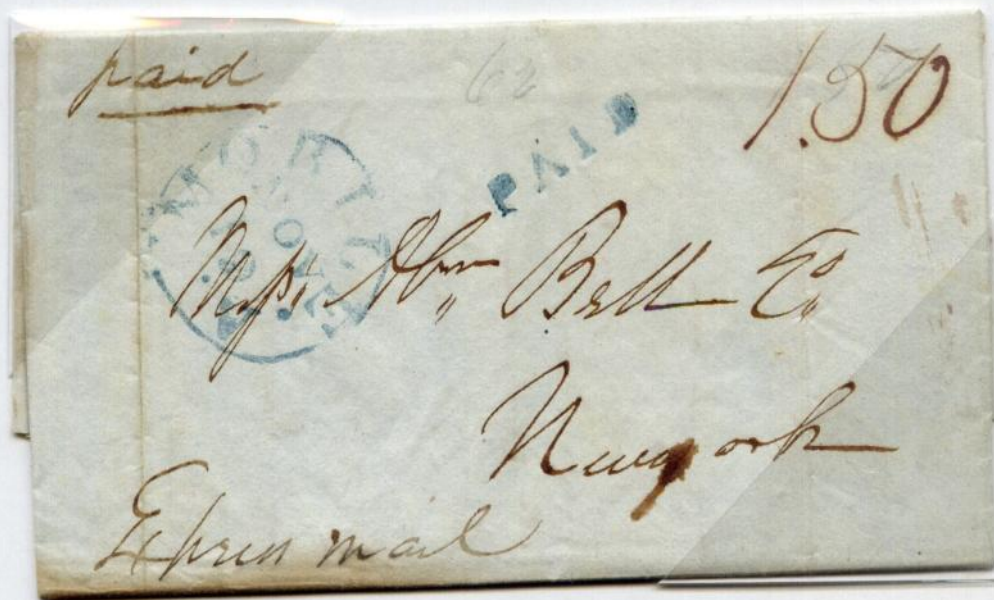 paid
62
1.50
PAID
MOBILE
Messrs Abm Bell Co
Newyork
Express mail